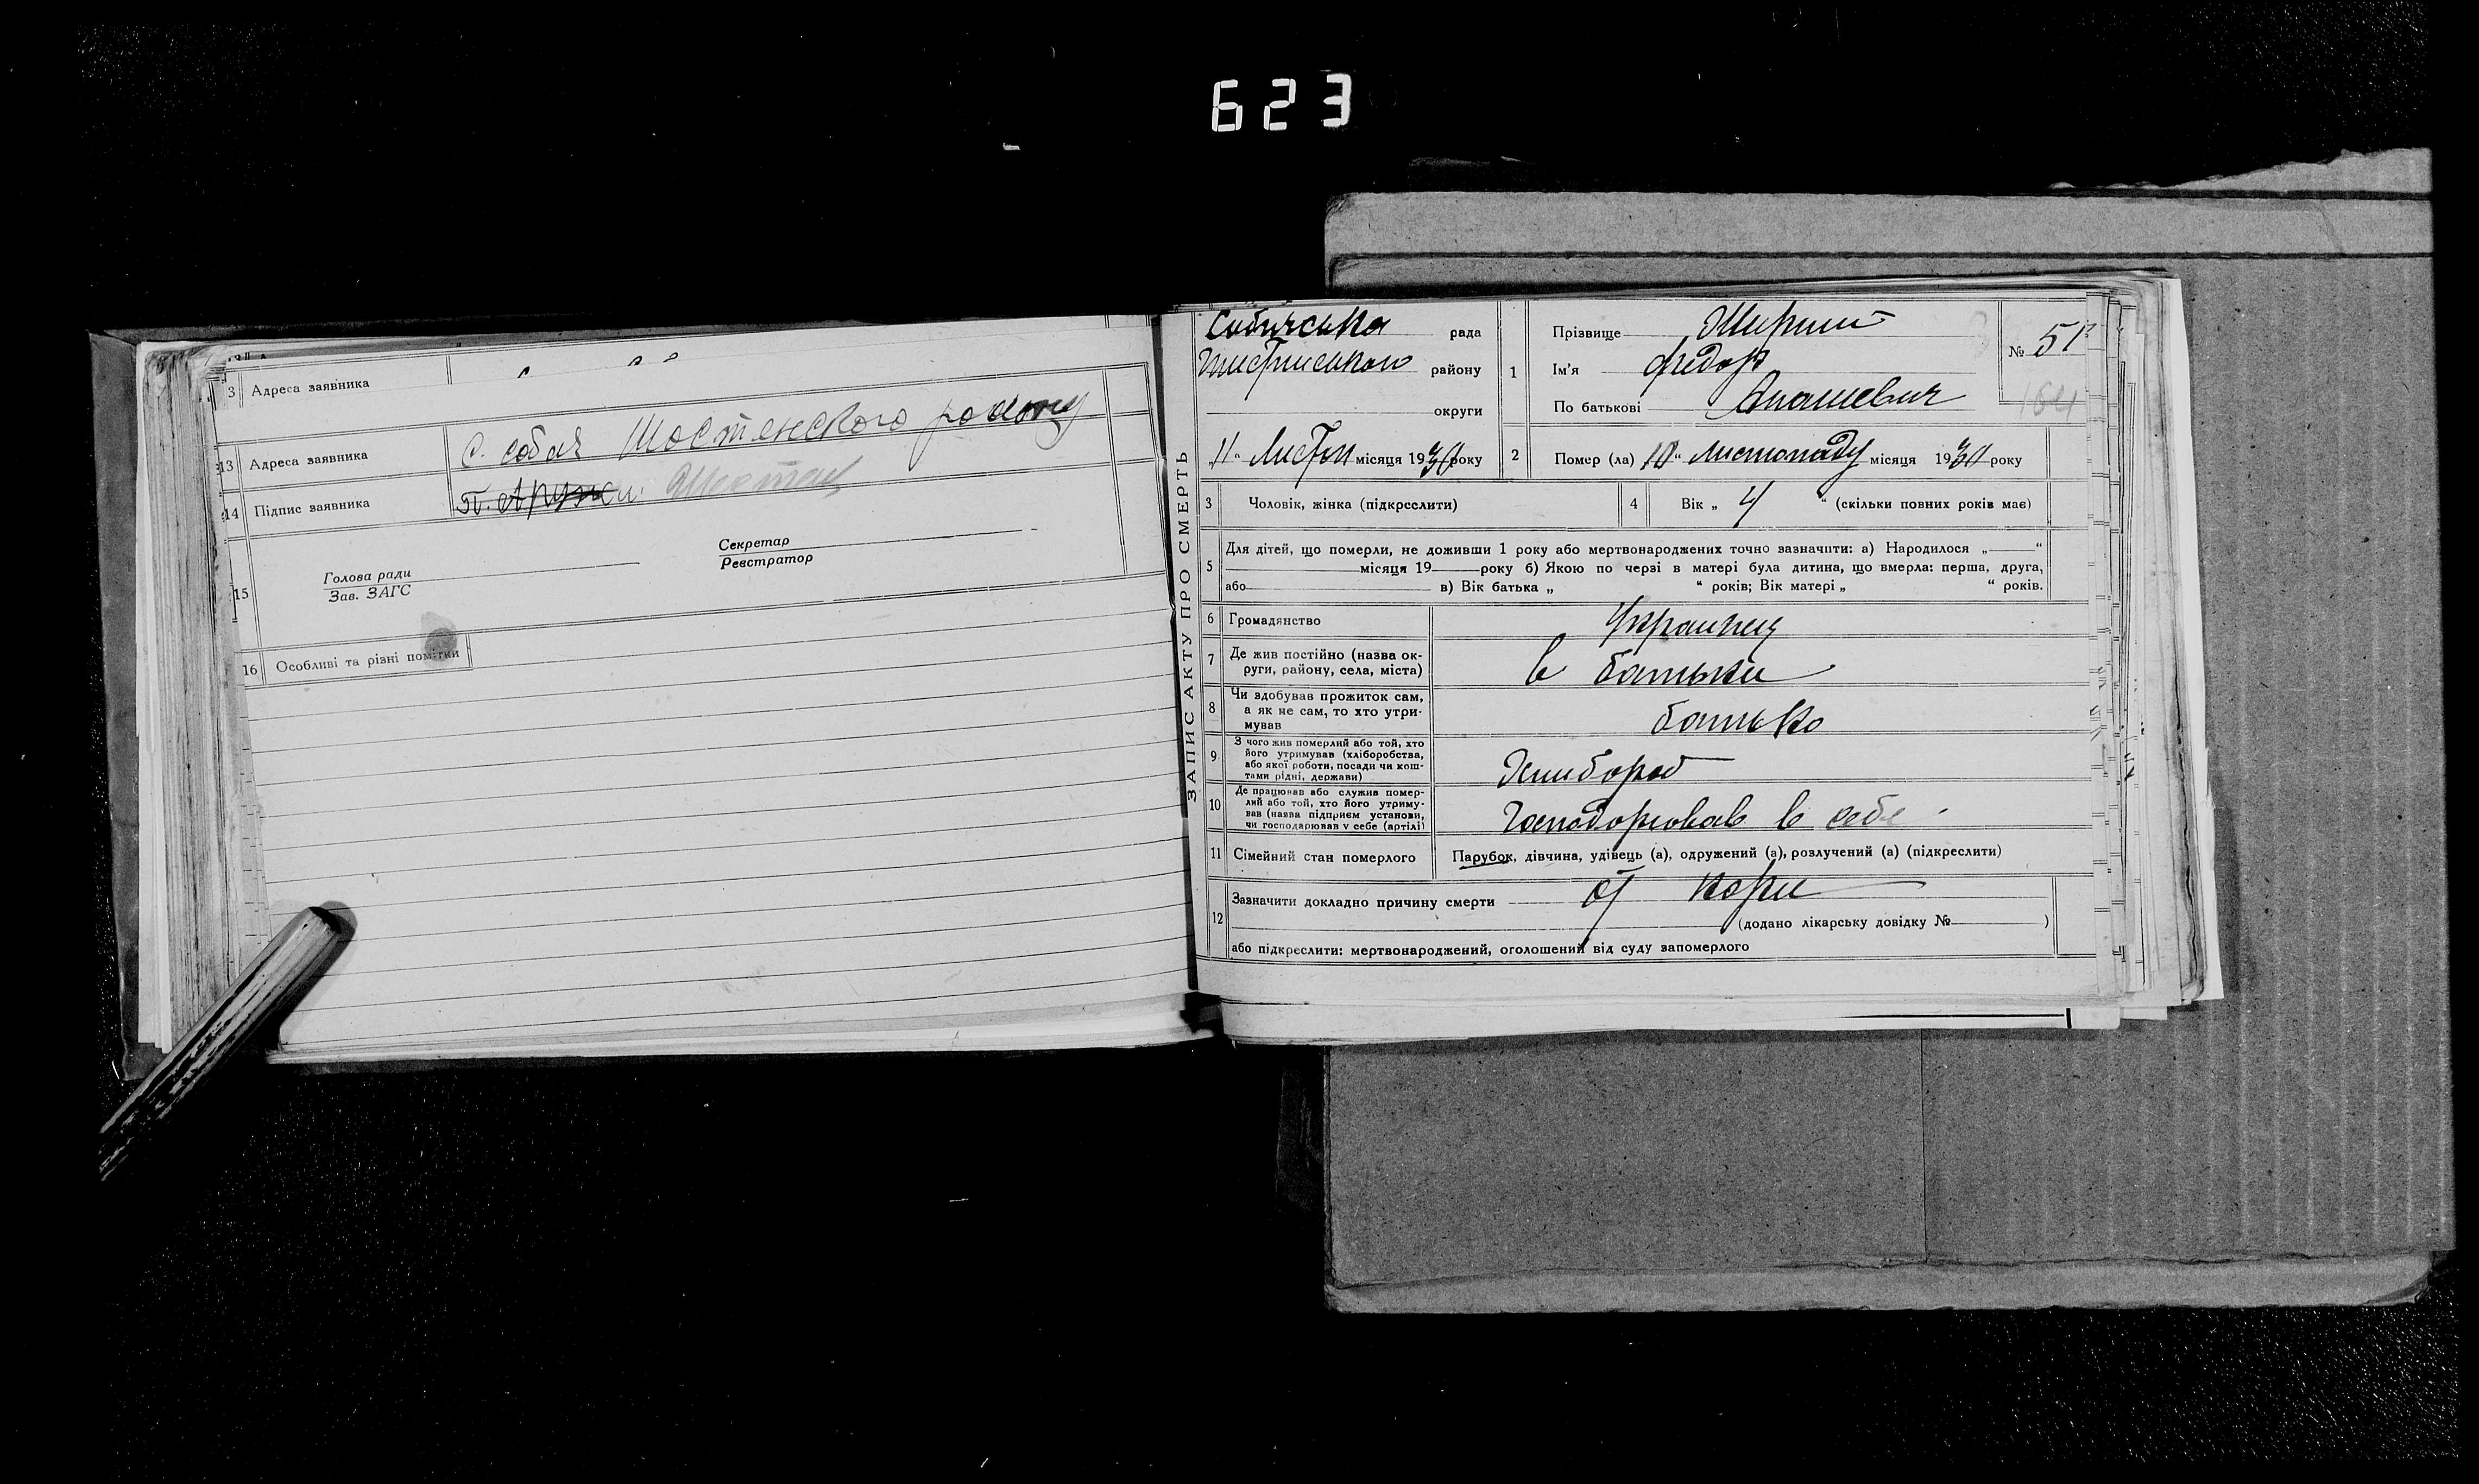 623
3 Адреса заявника
13 Адреса заявника с. собич Шостенского району
14 Підпис заявника
Секретар
Реєстратор
15 Голова ради
Зав. ЗАГС
16 Особливі та різні помітки
ЗАПИС АКТУ ПРО СМЕРТЬ
Собичська рада
району
округи
„11“ місяця 1930 року
1 Прізвище
Ім'я Федор
По батькові
№ 51
164
2 Помер (ла) „10“ Листопаду місяця 1930 року
3 Чоловік, жінка (підкреслити)
4 Вік „ 4 “ (скільки повних років має)
5 Для дітей, що померли, не доживши 1 року або мертвонароджених точно зазначити: а) Народилося „ “
місяця 19 року б) Якою по черзі в матері була дитина, що вмерла: перша, друга,
або в) Вік батька „ “ років; Вік матері „ “ років.
6 Громадянство Украинец
7 Де жив постійно (назва ок-
руги, району, села, міста) в батьки
8 Чи здобував прожиток сам,
а як не сам, то хто утри-
мував батько
9 З чого жив померлий або той, хто
його утримував (хліборобства,
або якої роботи, посади чи кош-
тами рідні, держави) Хлибороб
10 Де працював або служив помер-
лий або той, хто його утриму-
вав (назва підприєм установи,
чи господарював у себе (артілі) Господорював в себе
11 Сімейний стан померлого Парубок, дівчина, удівець (а), одружений (а), розлучений (а) (підкреслити)
12 Зазначити докладно причину смерти от кори
(додано лікарську довідку № )
або підкреслити: мертвонароджений, оголошений від суду запомерлого